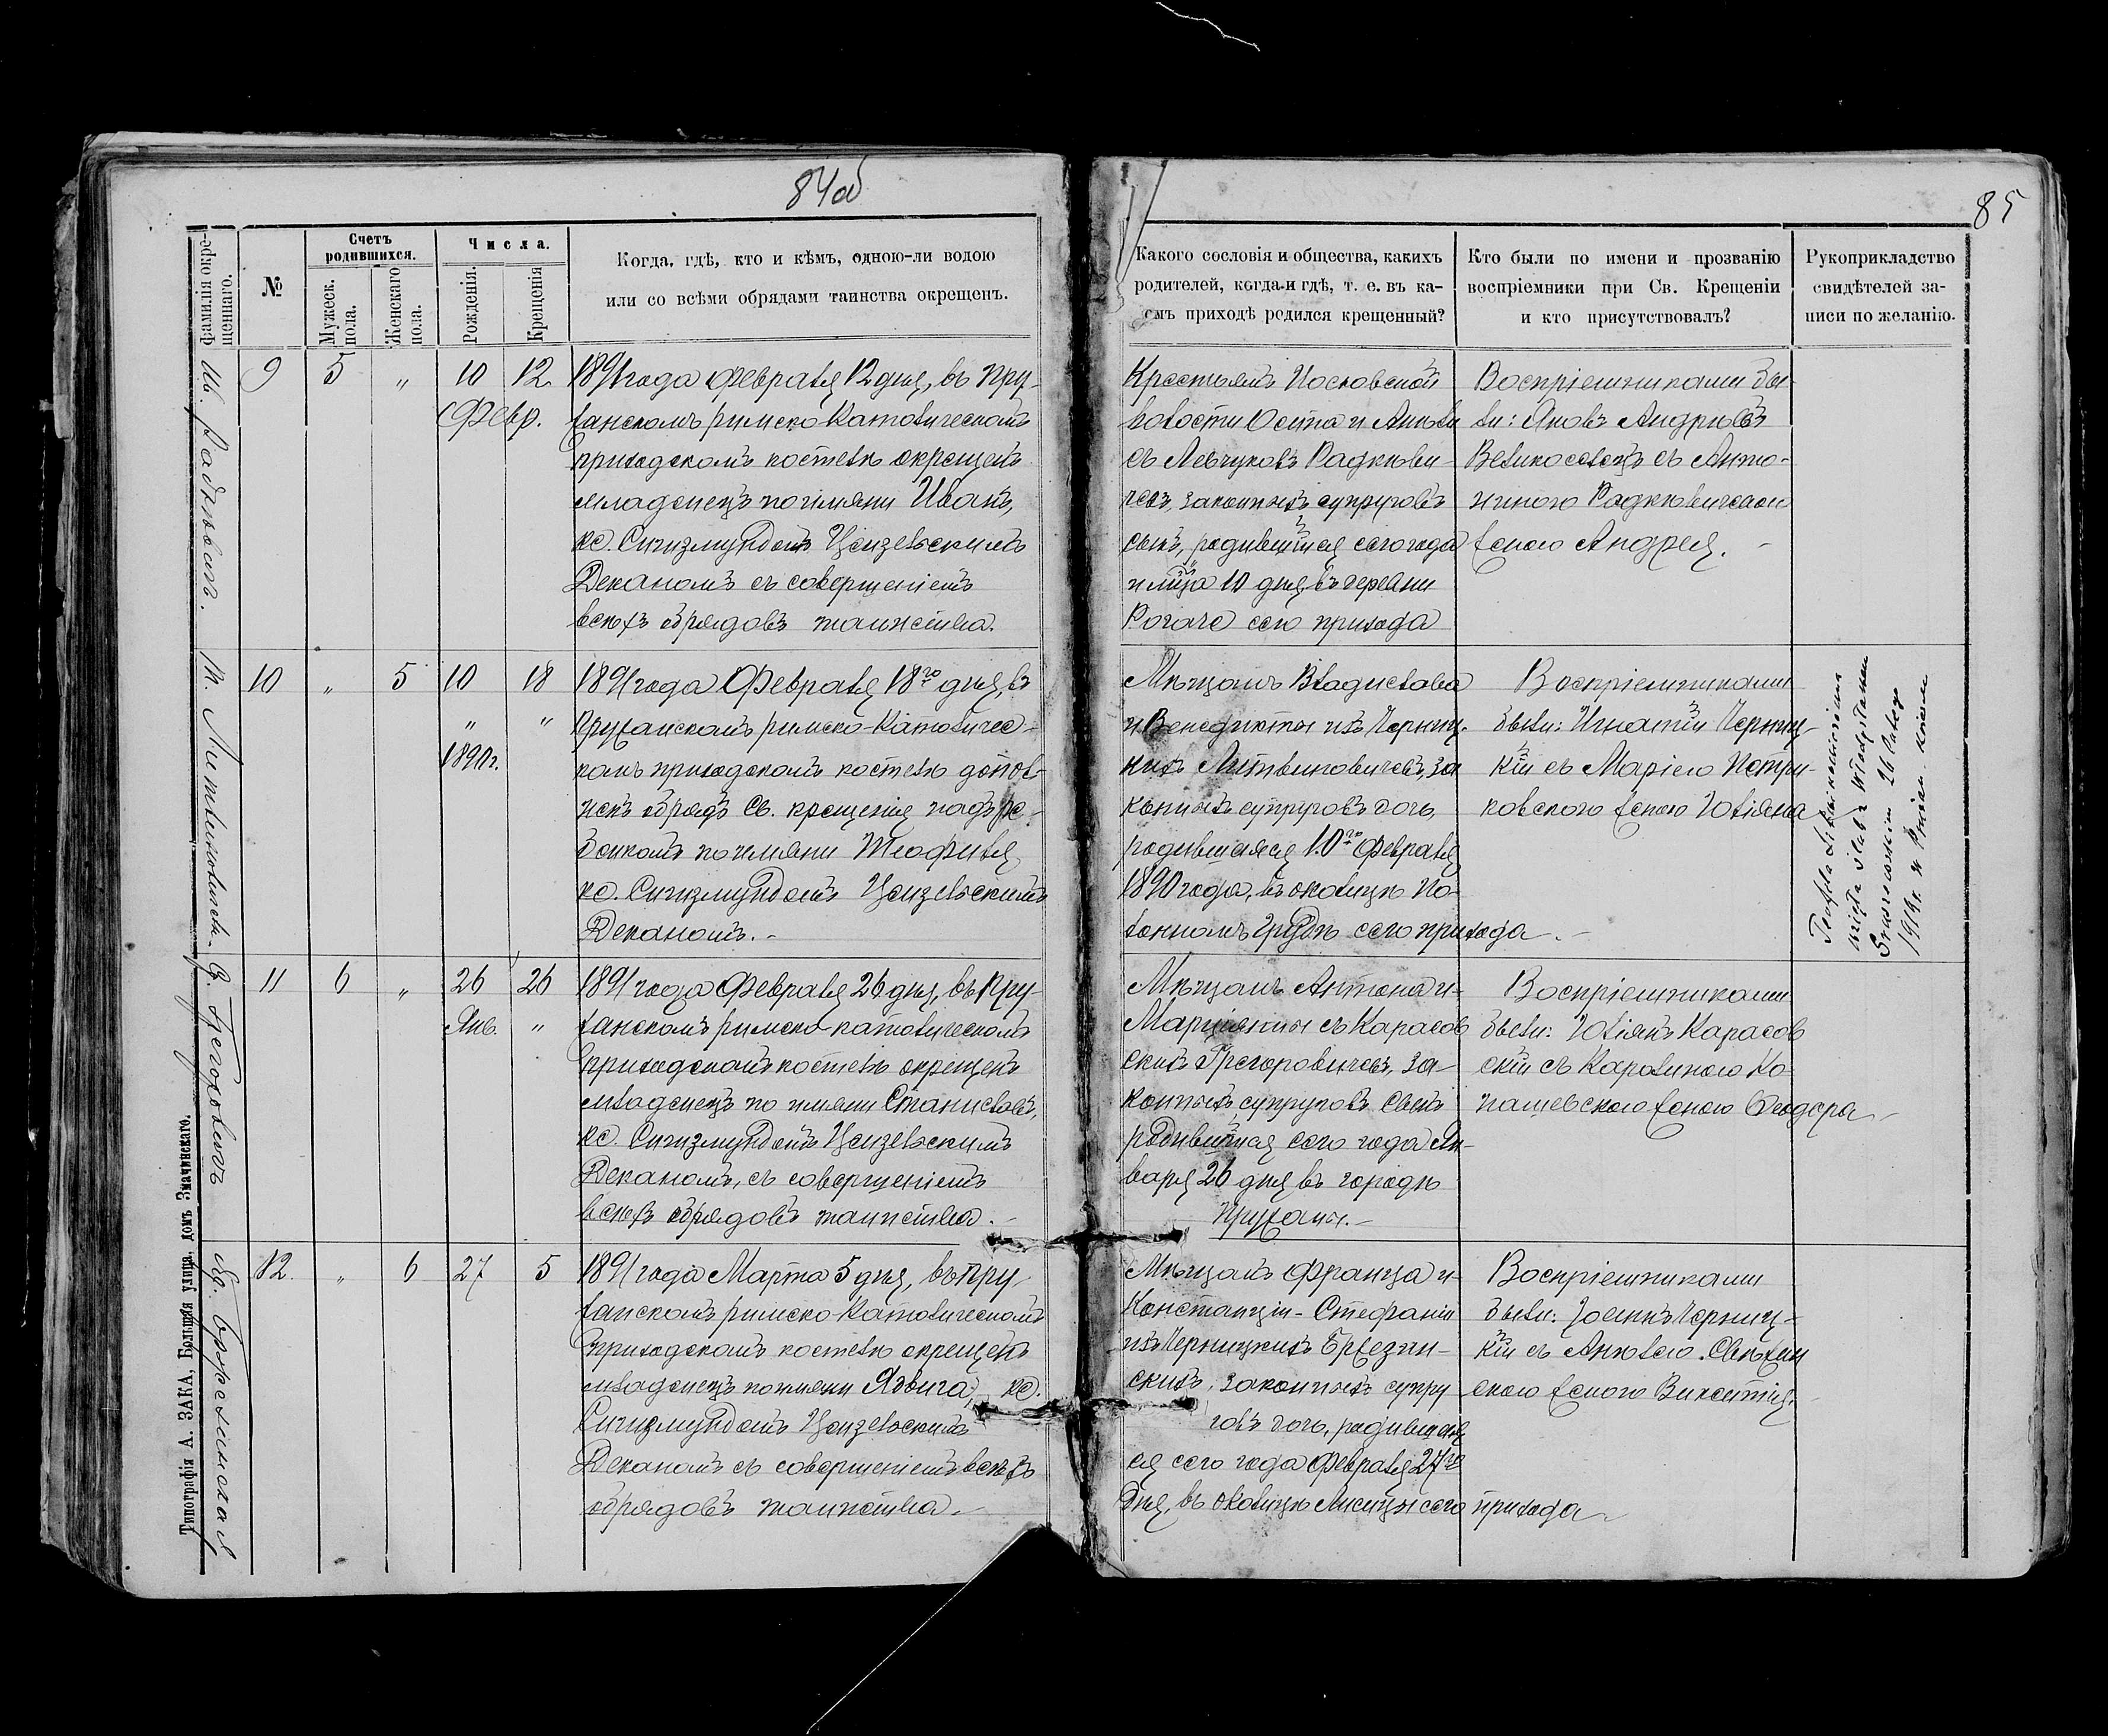 84об
Фамилія окре-
щеннаго.
№
Счетъ
родившихся.
Мужеск.
пола.
Женскаго
пола.
Числа.
Рожденія.
Крещенія
Когда, гдѣ, кто и кѣмъ, одною-ли водою
или со всѣми обрядами таинства окрещенъ.
Ив. Радкѣвичъ.
9 5 „ 10 12
Февр.
1891 года Февраля 12 дня, въ Пру-
жанскомъ римско-католическомъ
приходскомъ костелѣ окрещенъ
младенецъ по имяни Иванъ,
кс. Сигизмундомъ Цензельскимъ
Деканомъ съ совершеніемъ
всѣхъ обрядовъ таинства.
Т. Литвиновичъ.
10 „ 5 10 18
„ „
1890 г.
1891 года Февраля 18го дня, въ
Пружанскомъ римско-католичес-
комъ приходскомъ костелѣ допол-
ненъ обрядъ Св. крещенія надъ ре-
бенкомъ по имяни Теофиля,
кс. Сигизмундомъ Цензельскимъ
Деканомъ.-
11 6 „ 26 26
Янв. „
1891 года Февраля 26 дня, въ Пру-
жанскомъ римско-католическомъ
приходскомъ костелѣ окрещенъ
младенецъ по имяни Станиславъ,
кс. Сигизмундомъ Цензельскимъ
Деканомъ, съ совершеніемъ
всѣхъ обрядовъ таинства.-
12. „ 6 27 5
1891 года Марта 5 дня, въ Пру-
жанскомъ римско-католическомъ
приходскомъ костелѣ окрещенъ
младенецъ по имяни Ядвига, кс.
Сигизмундомъ Цензельскимъ
Деканомъ съ совершеніемъ всѣхъ
обрядовъ таинства.-
Типографія А. ЗАКА, Большая улица, домъ Значинскаго.
85
Какого сословія и общества, какихъ
родителей, когда и гдѣ, т. е. въ ка-
комъ приходѣ родился крещенный?
Кто были по имени и прозванію
воспріемники при Св. Крещеніи
и кто присутствовалъ?
Рукоприкладство
свидѣтелей за-
писи по желанію.
Крестьянъ Носковской
волости Осипа и Анели
съ Левчуковъ Радкѣви-
чей, законныхъ супруговъ
сынъ, родившійся сего года
и м-ца 10 дня, въ деревни
Рогаче сего прихода
Воспріемниками бы-
ли: Яковъ Андрѣевъ
Великоселецъ съ Анто-
ниною Радкѣвичевою
женою Андрея. -
Мѣщанъ Владислава
и Бенедикты изъ Черниц-
кихъ Литвиновичей, за-
конныхъ супруговъ дочь,
родившаяся 10го Февраля
1890 года, въ околицѣ По-
лонномъ Грудѣ сего прихода.-
Воспріемниками
были: Игнатій Черниц-
кій съ Маріею Петри-
ковскою женою Юліяна
1919 r.
Мѣщанъ Антона и
Марціянны съ Карасов-
скихъ Грегоровичей, за-
конныхъ супруговъ сынъ
родившійся сего года Ян-
варя 26 дня въ городѣ
Пружаны.-
Воспріемниками
были: Юліянъ Карасов-
скій съ Каролиною Ко-
пашевскою женою Феодора-
Мѣщанъ Франца и
Констанціи-Стефаніи
изъ Черницкихъ Бржезин-
скихъ, законныхъ супру-
говъ дочь, родившая-
ся сего года Февраля 27го
дня, въ околицѣ Лисицы сего прихода-
Воспріемниками
были: Іосифъ Черниц-
кій съ Анелею Свѣжин-
скою женою Викентія.